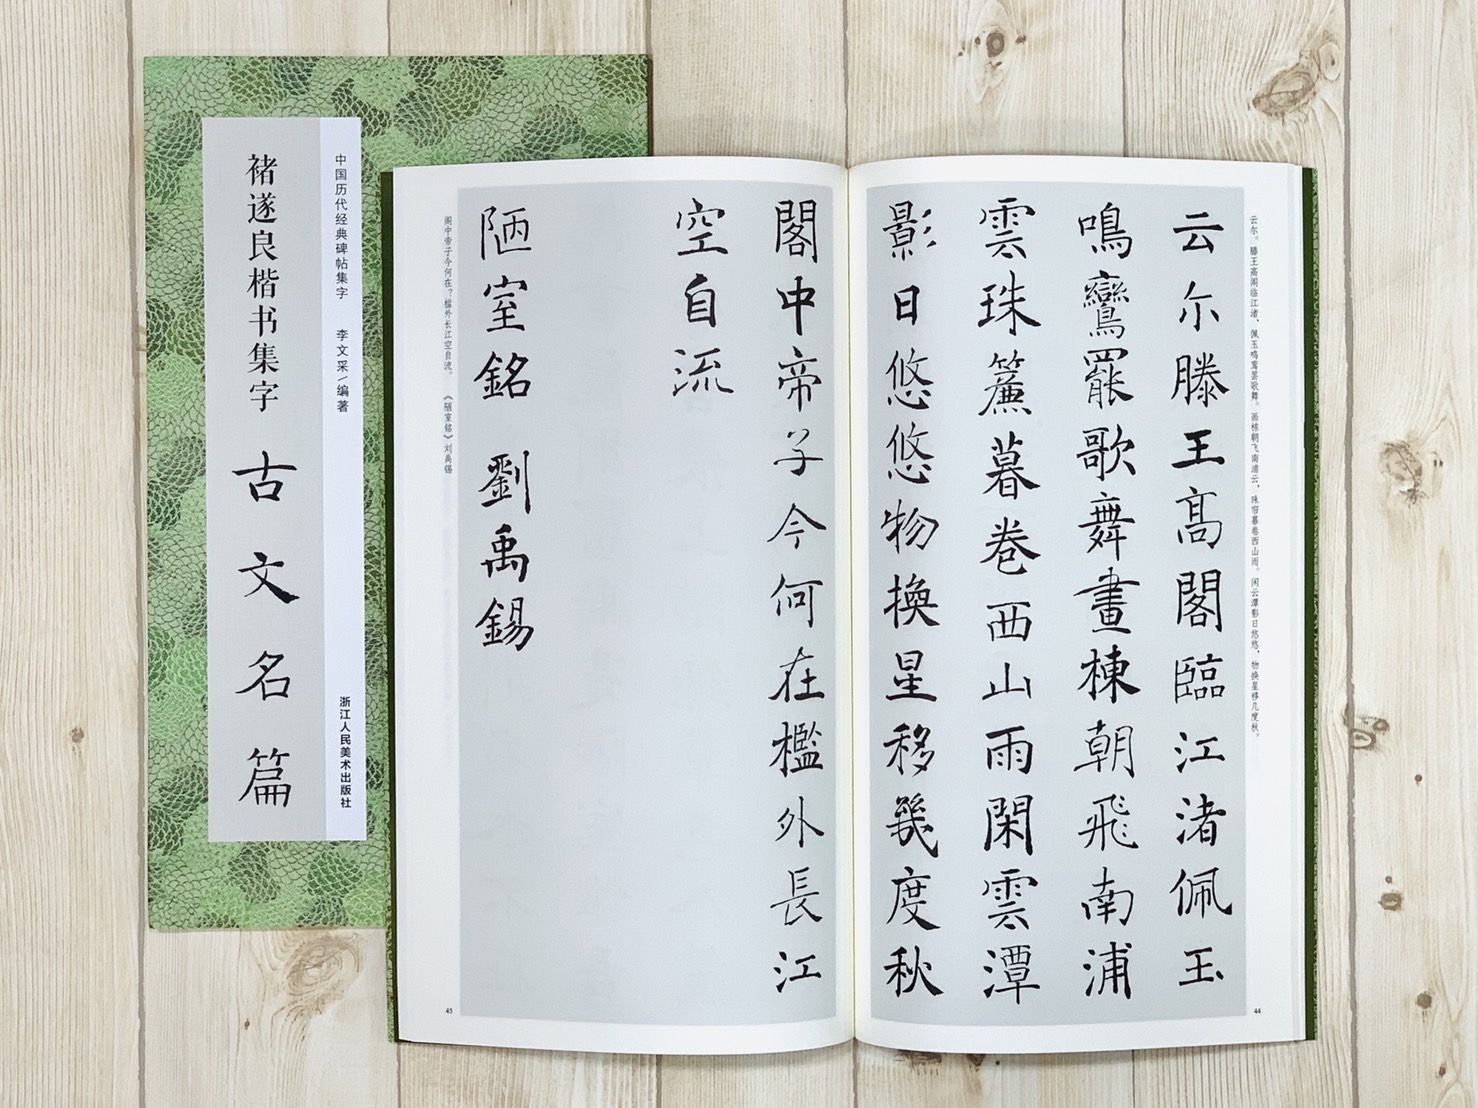 中国历代经典碑帖集字 李文采/编著 浙江人民美术出版社
褚遂良楷书集字 古文名篇
云尔。滕王高阁临江渚，佩玉鸣鸾罢歌舞。画栋朝飞南浦云，珠帘暮卷西山雨。闲云潭影日悠悠，物换星移几度秋。
44
云尓滕王髙閣臨江渚佩玉
鳴鸞罷歌舞畫棟朝飛南浦
雲珠簾暮卷西山雨閑雲潭
影日悠悠物換星移幾度秋
閣中帝子今何在檻外長江
空自流
陋室銘 劉禹錫
阁中帝子今何在？槛外长江空自流。 《陋室铭》刘禹锡
45